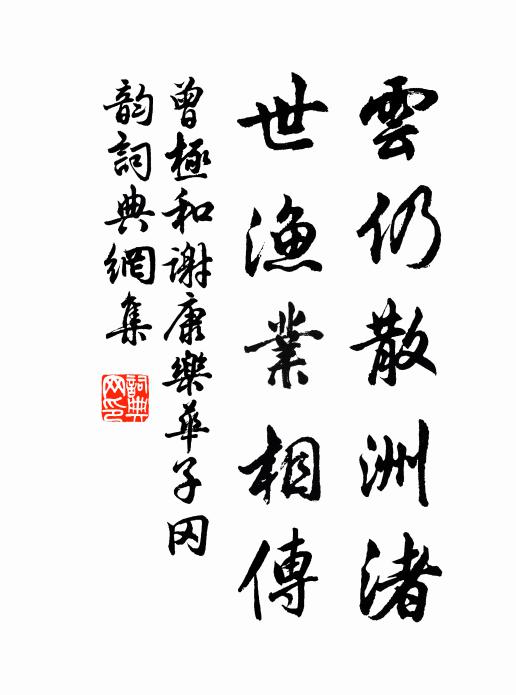 雲仍散洲渚
世漁業相傳
曾極和謝康樂華子岡
韵詞典網集
詞典
网印